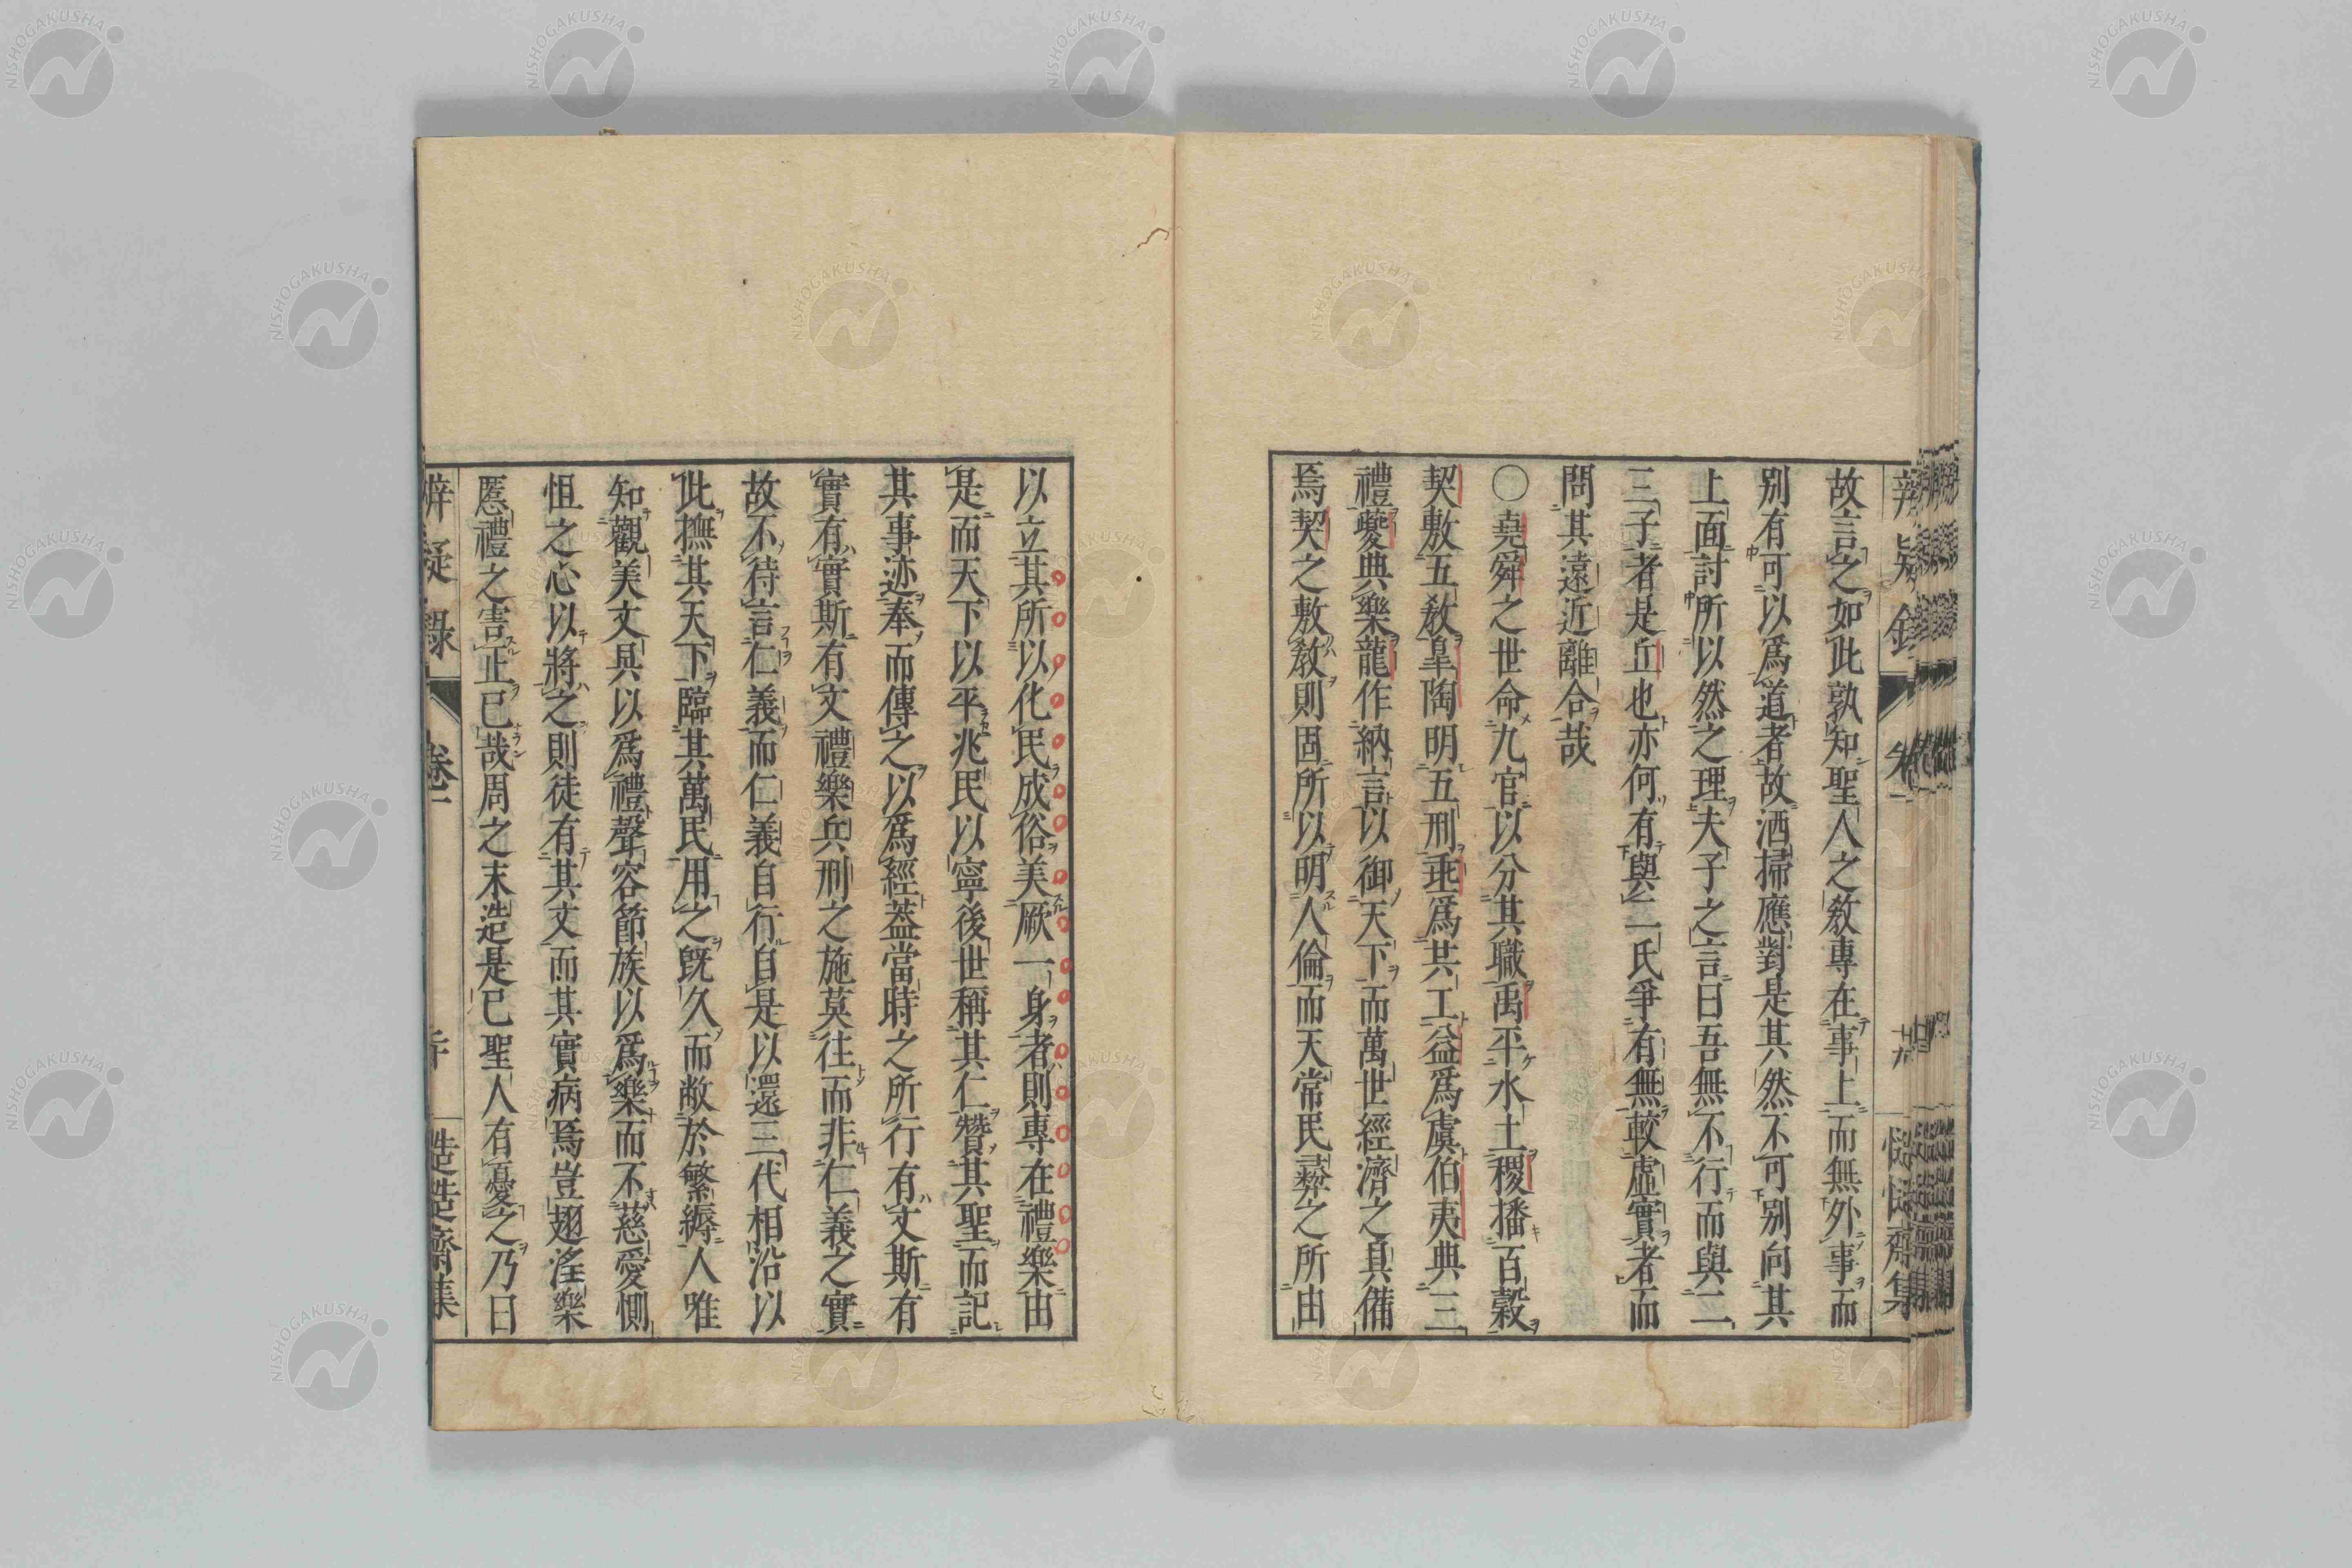 故言之如此孰知聖人之敎專在事上而無外事而
別有可以爲道者故洒掃應對是其然不可別向其
上面討所以然之理夫子之言曰吾無不行而與二
三子者是丘也亦何有與二氏爭有無較虛實者而
問其遠近離合哉
○堯舜之世命九官以分其職禹平水土稷播百穀
契敷五敎皐陶明五刑垂爲共工益爲虞伯夷典三
禮夔典樂龍作納言以御天下而萬世經濟之具備
焉契之敷敎則固所以明人倫而天常民彛之所由
以立其所以化民成俗美厥一身者則專在禮樂由
是而天下以平兆民以寧後世稱其仁贊其聖而記
其事迹奉而傳之以爲經葢當時之所行有文斯有
實有實斯有文禮樂兵刑之施莫往而非仁義之實
故不待言仁義而仁義自行自是以還三代相沿以
此撫其天下臨其萬民用之旣久而敝於繁縟人唯
知觀美文具以爲禮聲容節族以爲樂而不慈愛惻
怛之心以將之則徒有其文而其實病焉豈翅淫樂
慝禮之害止已哉周之末造是已聖人有憂之乃曰
辨疑錄 卷二 慥慥齋集